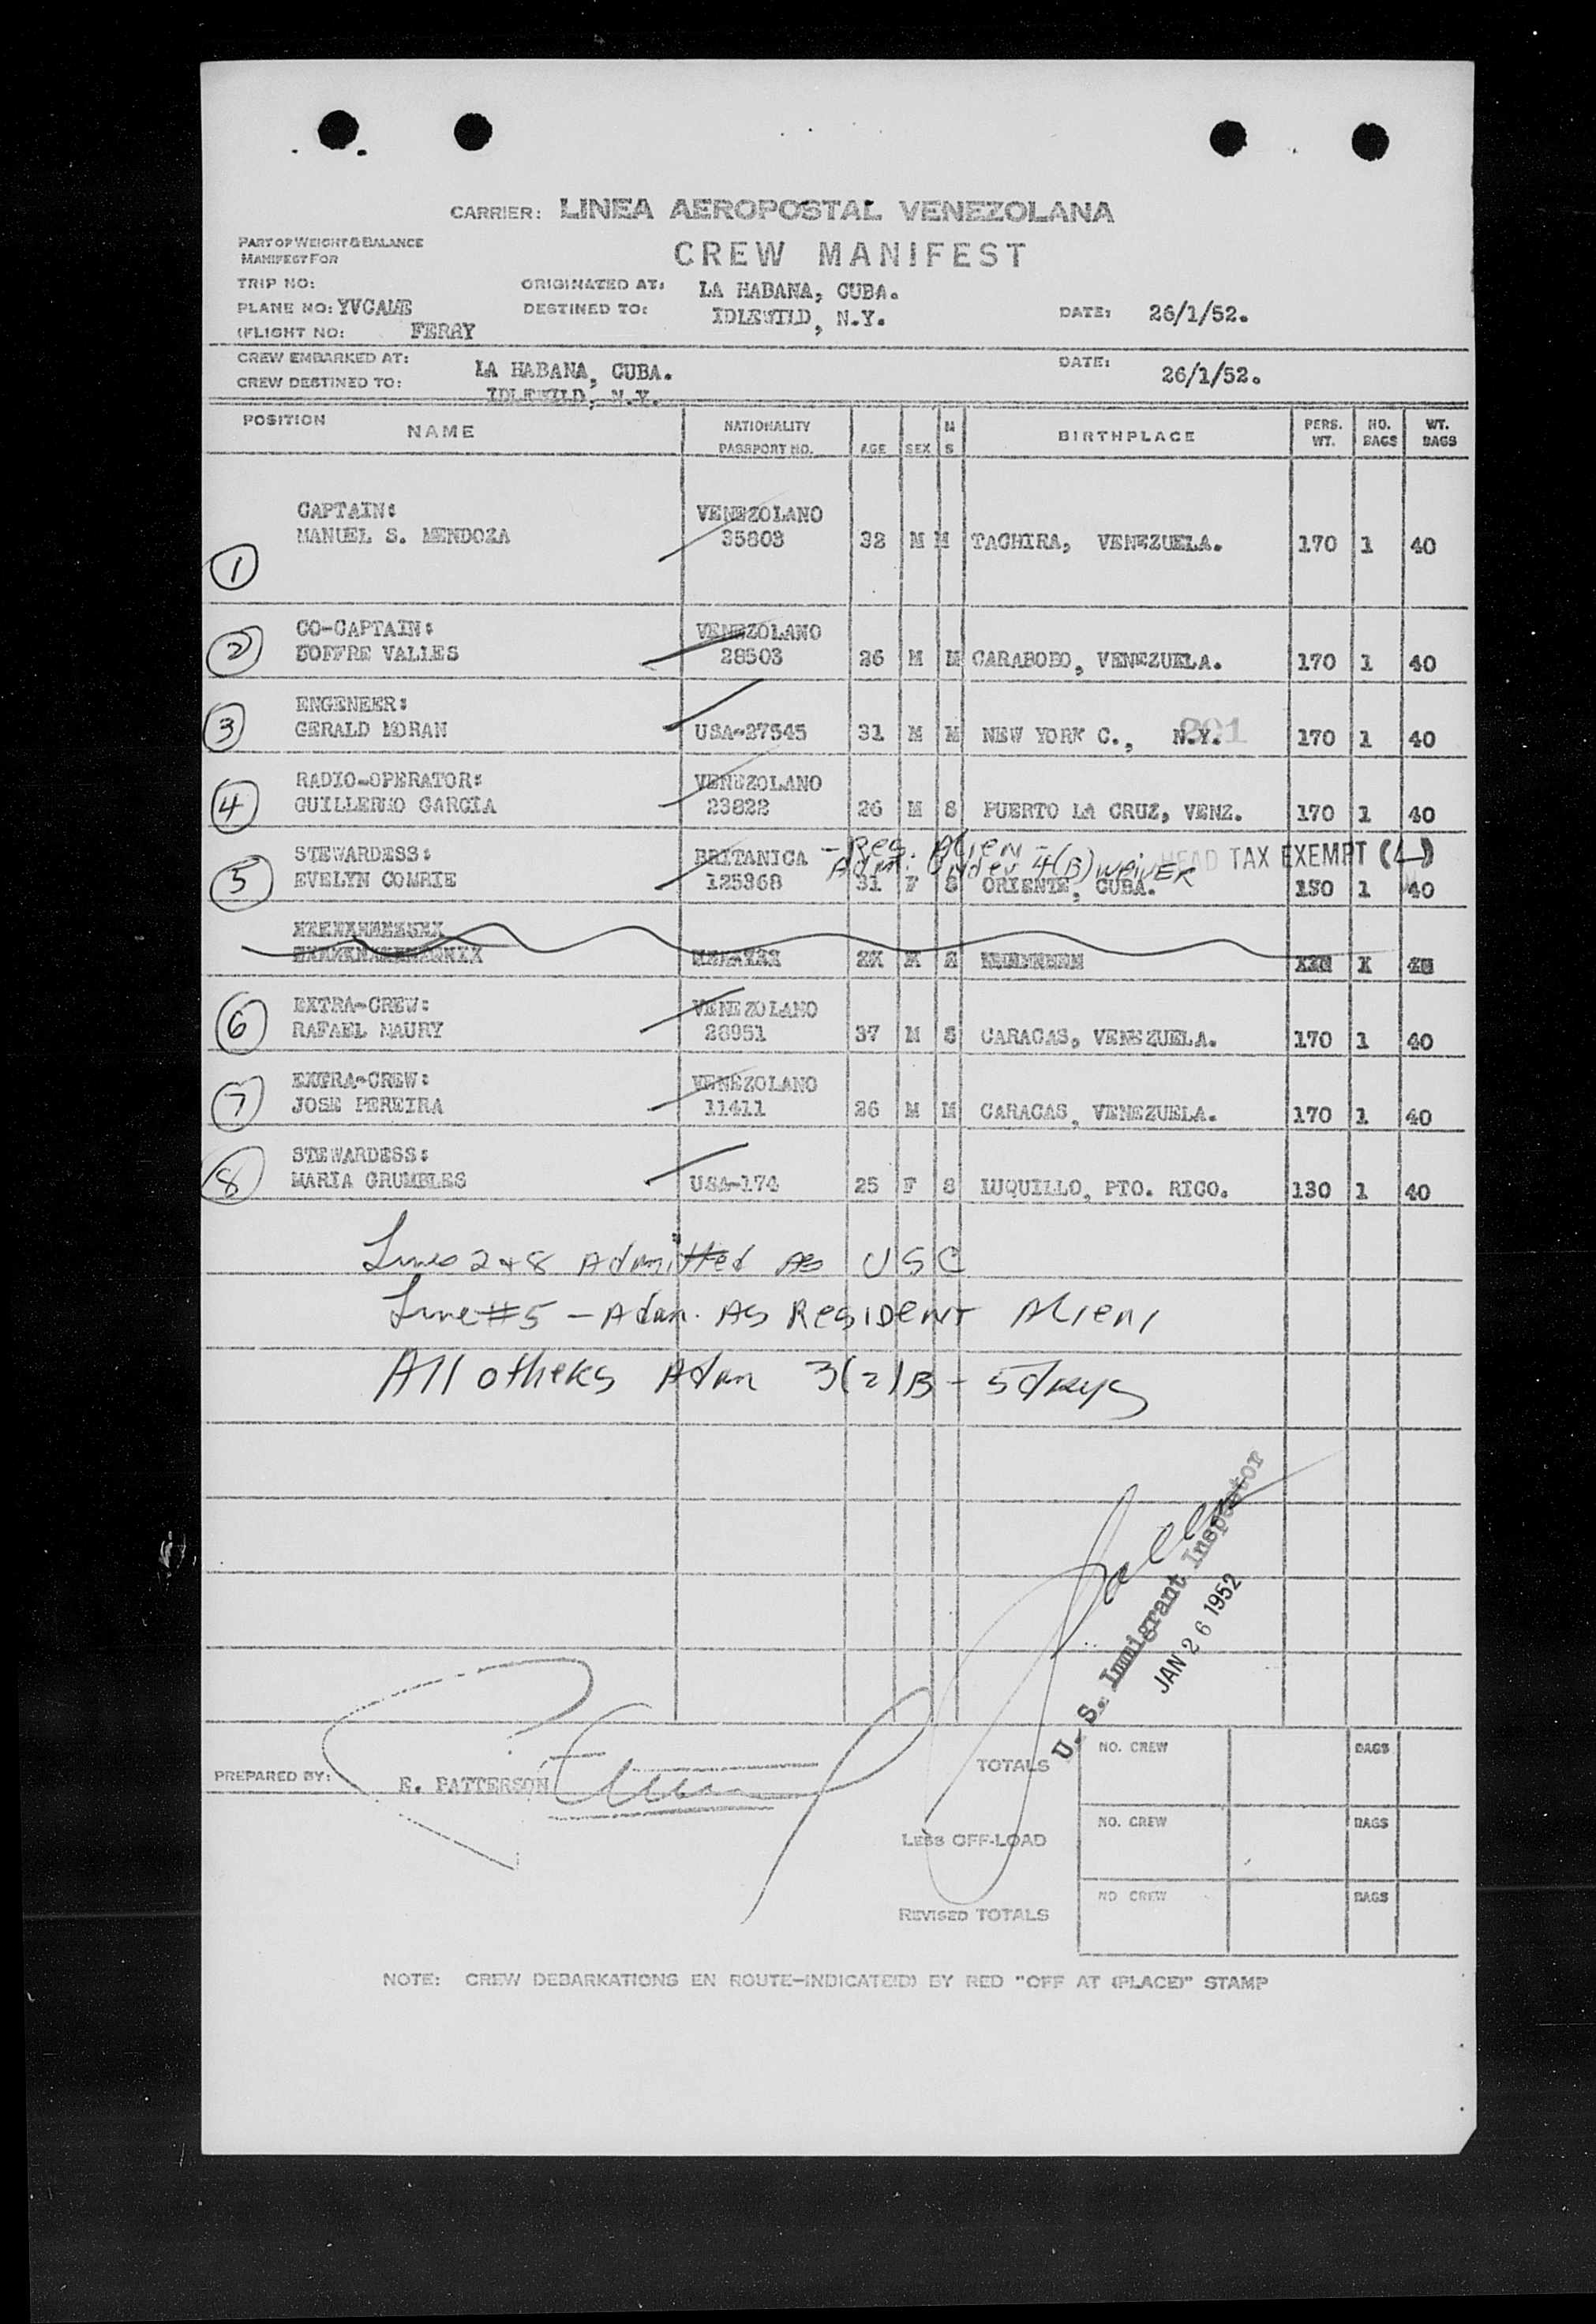 CARRIER: LINEA AEROPOSTAL VENEZOLANA
PART OF WEIGHT & BALANCE
MANIFEST FOR
CREW MANIFEST
TRIP NO: ORIGINATED AT: LA HABANA, CUBA.
PLANE NO: YVCAME DESTINED TO: IDLEWILD, N.Y. DATE: 26/1/52.
(FLIGHT NO: FERRY
CREW EMBARKED AT: LA HABANA, CUBA. DATE: 26/1/52.
CREW DESTINED TO: IDLEWILD, N.Y.
POSITION NAME NATIONALITY PASSPORT NO. AGE SEX M S BIRTHPLACE PERS. WT. NO. BAGS WT. BAGS
CAPTAIN: VENEZOLANO
1 MANUEL S. MENDOZA 35803 32 M M TACHIRA, VENEZUELA. 170 1 40
CO-CAPTAIN: VENEZOLANO
2 VALLES 28503 26 M M CARABOBO, VENEZUELA. 170 1 40
ENGENEER:
3 GERALD MORAN USA-27545 31 M M NEW YORK C., N.Y. 201 170 1 40
RADIO-OPERATOR: VENEZOLANO
4 GUILLERMO GARCIA 23822 26 M S PUERTO LA CRUZ, VENZ. 170 1 40
STEWARDESS: BRITANICA - Res. Alien - HEAD TAX EXEMPT (4)
Adm. Under 4(B) waiver
5 EVELYN COMRIE 125368 31 F S ORIENTE, CUBA. 130 1 40
EXTRA-CREW: VENEZOLANO
6 RAFAEL MAURY 28951 37 M S CARACAS, VENEZUELA. 170 1 40
EXTRA-CREW: VENEZOLANO
7 JOSE PEREIRA 11411 26 M M CARACAS, VENEZUELA. 170 1 40
STEWARDESS:
8 MARIA GRUMBLES USA-174 25 F S LUQUILLO, PTO. RICO. 130 1 40
Lines 2 + 8 Admitted As USC
Line #5 - Adm. As Resident Alien
All others Adm 3(2)B - 5 days
U. S. Immigrant Inspector
JAN 26 1952
PREPARED BY: R. PATTERSON
TOTALS NO. CREW BAGS
LESS OFF-LOAD NO. CREW BAGS
REVISED TOTALS NO CREW BAGS
NOTE: CREW DEBARKATIONS EN ROUTE-INDICATE(D) BY RED "OFF AT (PLACE)" STAMP